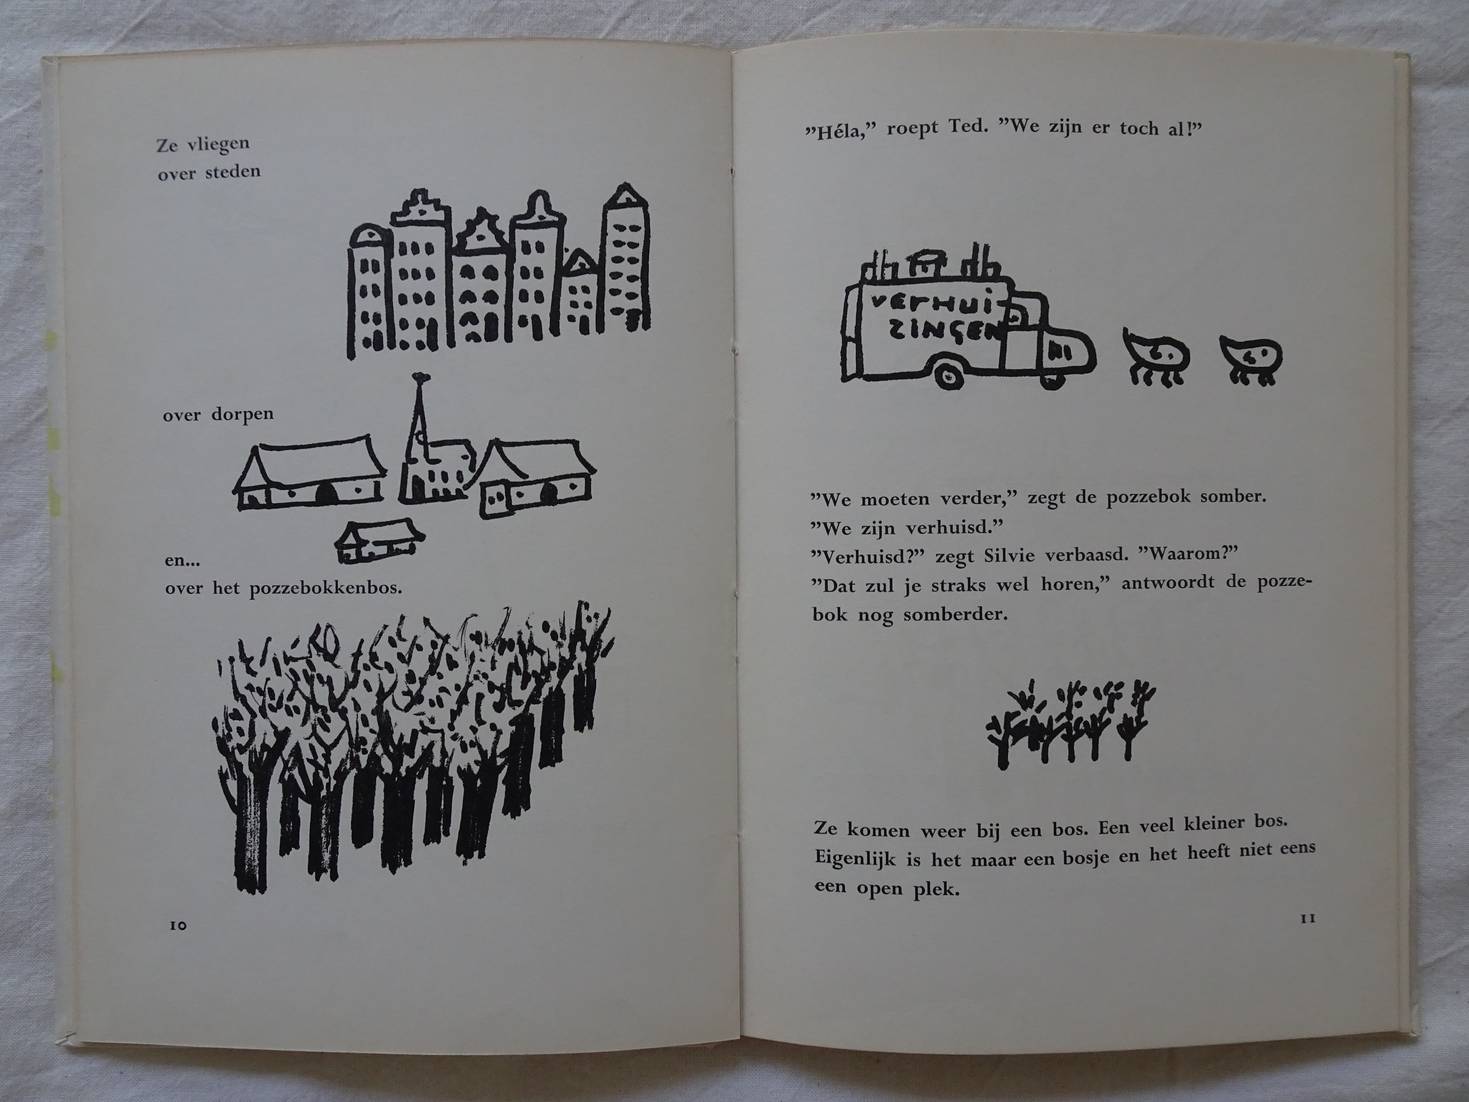 Ze vliegen
over steden
over dorpen
en...
over het pozzebokkenbos.
10
”Héla,” roept Ted. ”We zijn er toch al!”
VERHUI-
ZINGEN
”We moeten verder,” zegt de pozzebok somber.
”We zijn verhuisd.”
”Verhuisd?” zegt Silvie verbaasd. ”Waarom?”
”Dat zul je straks wel horen,” antwoordt de pozze-
bok nog somberder.
Ze komen weer bij een bos. Een veel kleiner bos.
Eigenlijk is het maar een bosje en het heeft niet eens
een open plek.
11